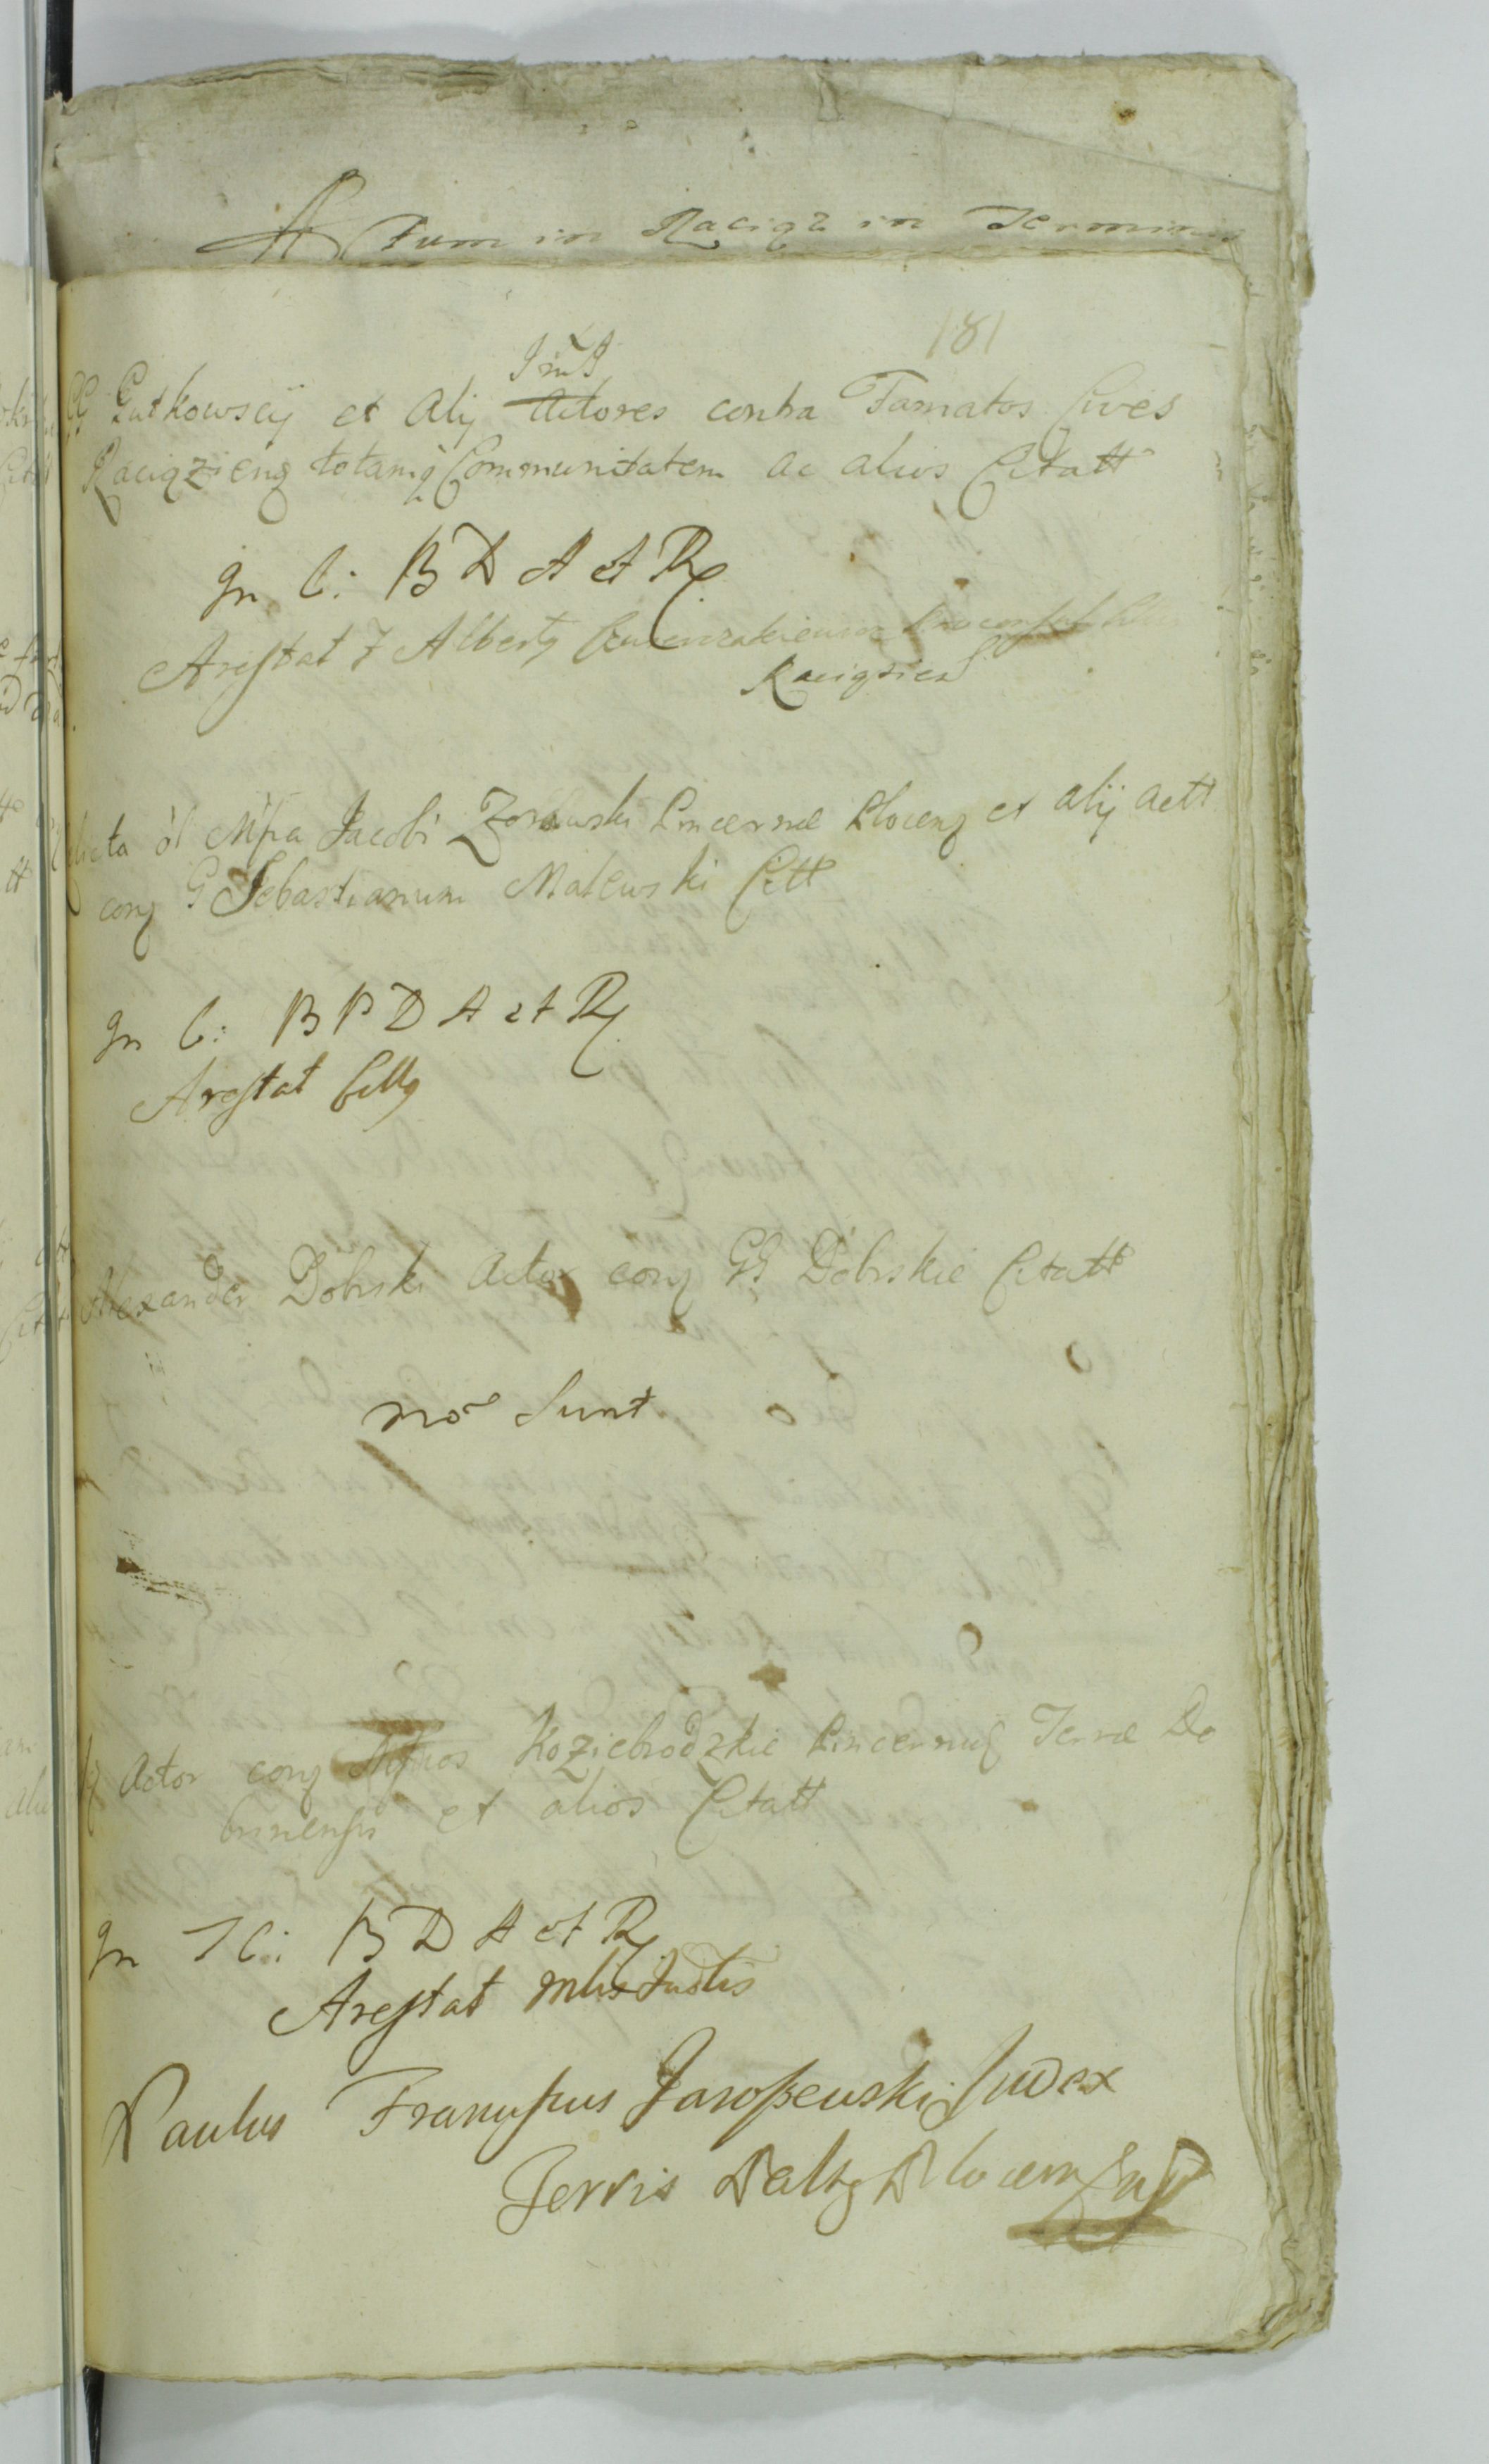 Actum in Raciąż in Terminis
181
Imt
GG Gutkowscy et Alij Actores contra Famatos Cives
Raciązieng totamq Communitatem ac alios Citatt
In C: B D A et R
Arestat F Albertg Proconsul
Raciązien
olim Mfca Jacobi Zorawski Pincernæ Ploceng et alij Actt
cong G Sebastianum Malewski Citt
In C: B P D A et R
Arestat Cittg
Alexander Dobrski Actor cong GG Dobrskie Citatt
nō sunt
Actor cong Mgfcos Koziebrodzkie Terræ Do
brinensis et alios Citatt
In T C: B D A et R
Arestat
Paulus Franciscus Jaroszewski Judex
Terris Paltg Plocen